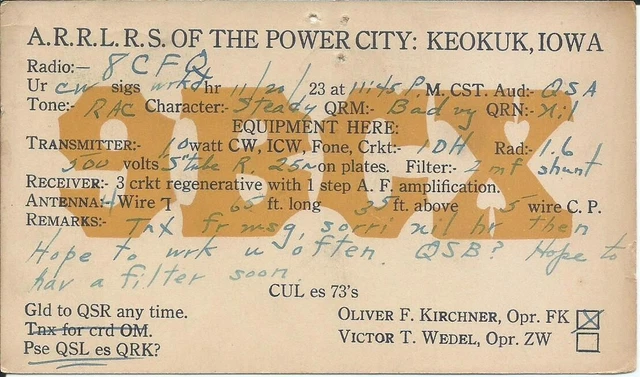 A.R.R.L.R.S. OF THE POWER CITY: KEOKUK, IOWA
Radio:— 8CFQ
Ur CW sigs wrkd hr 11/20/23 at 11:45 P.M. CST. Aud:- QSA
Tone:- RAC Character:- Steady QRM:- Bad vy QRN:- Nil
EQUIPMENT HERE:
TRANSMITTER:- 10 watt CW, ICW, Fone, Crkt:- 1DH Rad:- 1.6
500 volts R. 25 on plates. Filter:- 2 mf shunt
RECEIVER:- 3 crkt regenerative with 1 step A. F. amplification.
ANTENNA:- 4 Wire T 65 ft. long 35 ft. above 5 wire C. P.
REMARKS:- Tnx fr msg, sorri nil hr then
Hope to wrk u often. QSB? Hope to
hav a filter soon.
9BGX
CUL es 73's
Gld to QSR any time.
Tnx for crd OM.
Pse QSL es QRK?
OLIVER F. KIRCHNER, Opr. FK
VICTOR T. WEDEL, Opr. ZW